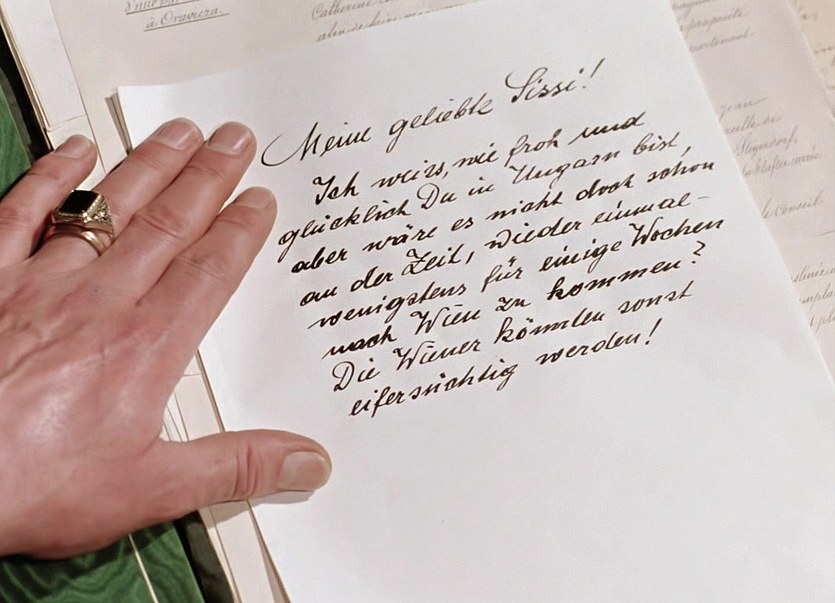 d'une pa
à Oravicza.
Catherine
Meine geliebte Sissi!
Ich weiss, wie froh und
glücklich Du in Ungarn bist,
aber wäre es nicht doch schon
an der Zeit, wieder einmal-
wenigstens für einige Wochen
nach Wien zu kommen?
Die Wiener könnten sonst
eifersüchtig werden!
le Conseil